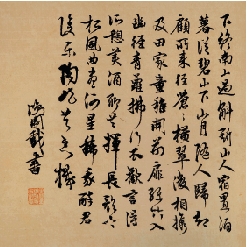 下終南山過斛斯山人宿置酒
暮從碧山下山月隨人歸却
顧所來徑蒼蒼橫翠微相携
及田家童稚開荊扉綠竹入
幽徑青蘿拂行衣歡言得
所憩美酒聊共揮長歌吟
松風曲盡河星稀我醉君
復樂陶然共忘機
書